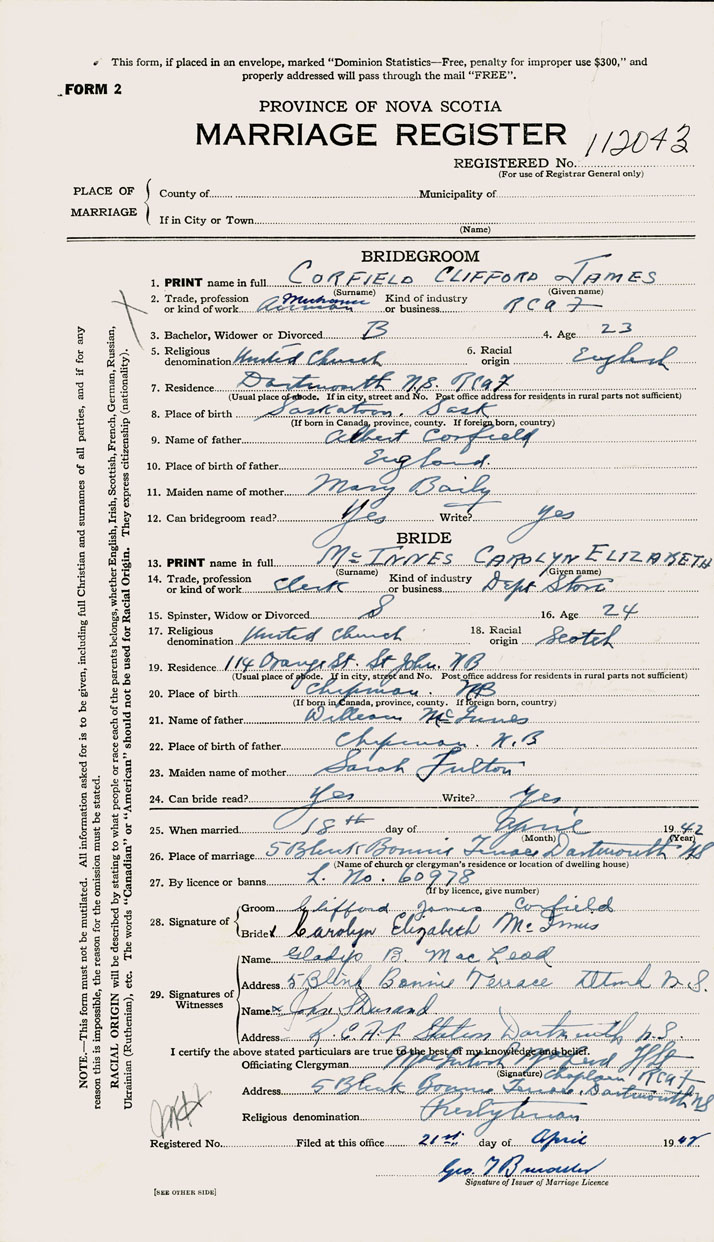 This form, if placed in an envelope, marked "Dominion Statistics—Free, penalty for improper use $300," and
properly addressed will pass through the mail "FREE".
FORM 2
PROVINCE OF NOVA SCOTIA
MARRIAGE REGISTER
112043
REGISTERED No.
(For use of Registrar General only)
PLACE OF MARRIAGE
County of Municipality of
If in City or Town
(Name)
BRIDEGROOM
1. PRINT name in full CORFIELD CLIFFORD JAMES
(Surname) (Given name)
2. Trade, profession or kind of work Airman Kind of industry or business RCAF
3. Bachelor, Widower or Divorced B 4. Age 23
5. Religious denomination United Church 6. Racial origin English
7. Residence Dartmouth N.S. RCAF
(Usual place of abode. If in city, street and No. Post office address for residents in rural parts not sufficient)
8. Place of birth Saskatoon, Sask
(If born in Canada, province, county. If foreign born, country)
9. Name of father Albert Corfield
10. Place of birth of father England.
11. Maiden name of mother Mary Baily
12. Can bridegroom read? Yes Write? Yes
BRIDE
13. PRINT name in full McINNES CAROLYN ELIZABETH
(Surname) (Given name)
14. Trade, profession or kind of work Clerk Kind of industry or business Dept Store
15. Spinster, Widow or Divorced S 16. Age 24
17. Religious denomination United Church 18. Racial origin Scotch
19. Residence 114 Orange St. St John, NB
(Usual place of abode. If in city, street and No. Post office address for residents in rural parts not sufficient)
20. Place of birth Chipman. NB
(If born in Canada, province, county. If foreign born, country)
21. Name of father William McInnes
22. Place of birth of father Chipman. N.B
23. Maiden name of mother Sarah Fulton
24. Can bride read? Yes Write? Yes
25. When married 18th day of April 1942
(Month) (Year)
26. Place of marriage 5 Blink Bonnie Terrace Dartmouth NS
(Name of church or clergyman's residence or location of dwelling house)
27. By licence or banns L. No. 60978
(If by licence, give number)
28. Signature of
Groom Clifford James Corfield
Bride x Carolyn Elizabeth McInnes
29. Signatures of Witnesses
Name Gladys B. MacLeod
Address 5 Blink Bonnie Terrace Dtmd N.S.
Name x John
Address R.C.A.F. Station Dartmouth N.S
I certify the above stated particulars are true to the best of my knowledge and belief.
Officiating Clergyman
(Signature) Chaplain RCAF
Address 5 Blink Bonnie Terrace, Dartmouth NS
Religious denomination Presbyterian
Registered No. Filed at this office 21st day of April 1942
Geo.
Signature of Issuer of Marriage Licence
[SEE OTHER SIDE]
NOTE.—This form must not be mutilated. All information asked for is to be given, including full Christian and surnames of all parties, and if for any
reason this is impossible, the reason for the omission must be stated.
RACIAL ORIGIN will be described by stating to what people or race each of the parents belongs, whether English, Irish, Scottish, French, German, Russian,
Ukrainian (Ruthenian), etc. The words "Canadian" or "American" should not be used for Racial Origin. They express citizenship (nationality).